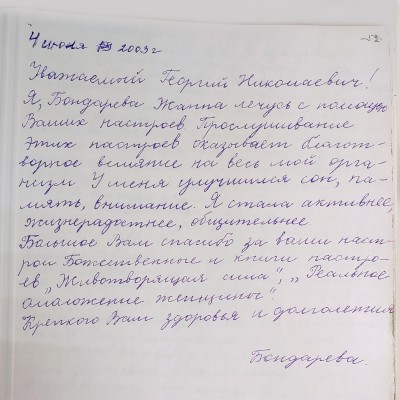 -52-
4 июня 2009 г
Уважаемый Георгий Николаевич!
Я, Бондарева Жанна лечусь с помощью
Ваших настроев. Прослушивание
этих настроев оказывает благот-
ворное влияние на весь мой орга-
низм. У меня улучшился сон, па-
мять, внимание. Я стала активнее,
жизнерадостнее, общительнее.
Большое Вам спасибо за ваши наст-
рои Божественные и книги настро-
ев „Животворящая сила", „Реальное
омоложение женщины".
Крепкого Вам здоровья и долголетия
Бондарева.